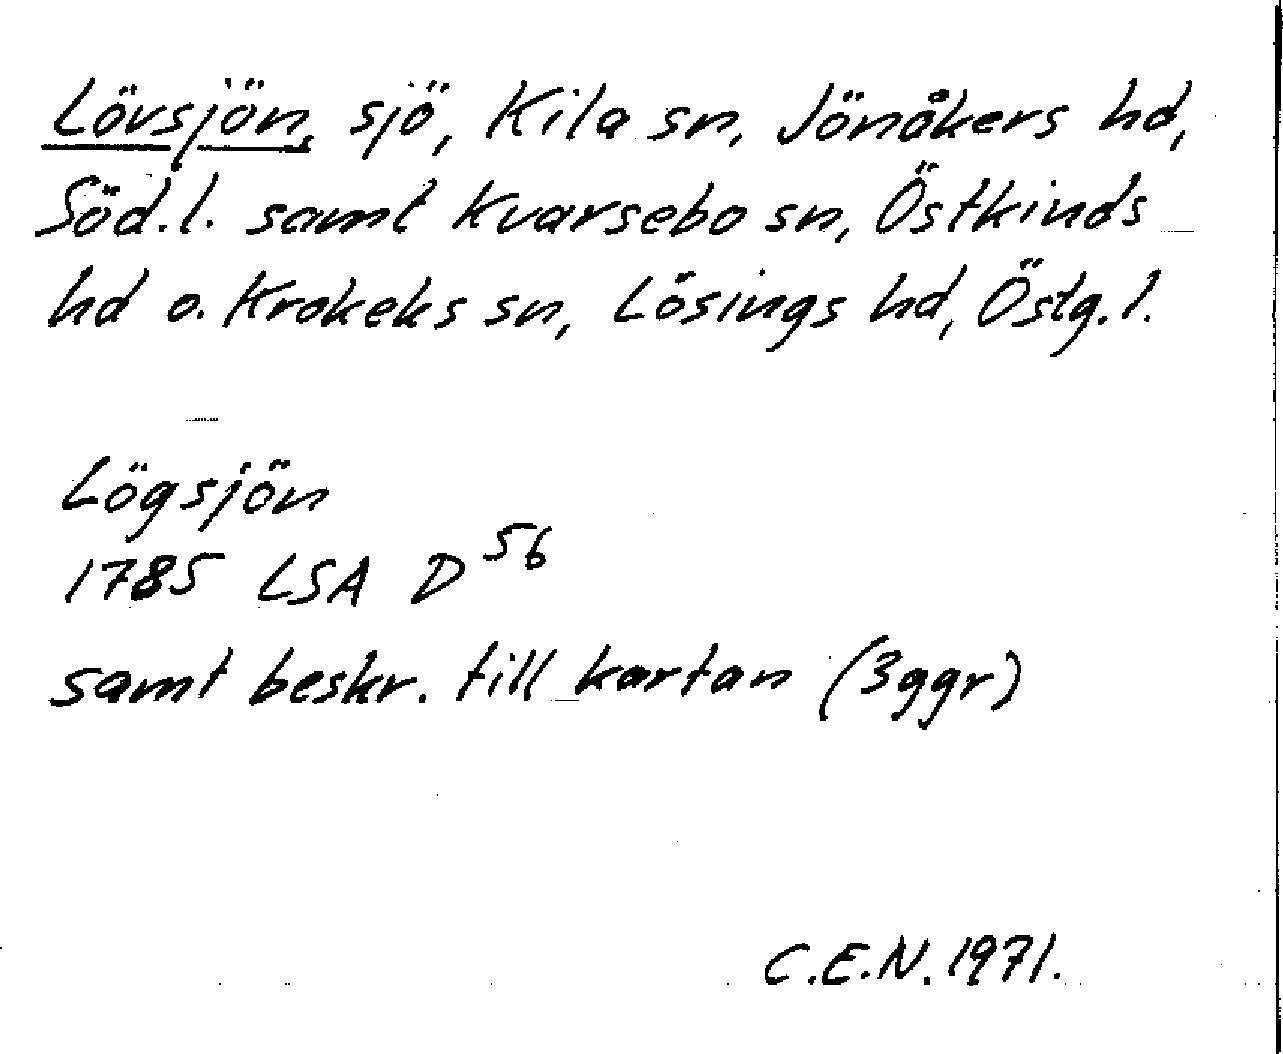 Lövsjön, sjö, Kila sn, Jönåkers hd,
Söd.l. samt Kvarsebo sn, Östkinds
hd o. Krokeks sn, Lösings hd, Östg.l.
Lögsjön
1785 LSA D 56
samt beskr. till kartan (3ggr)
C.E.N. 1971.